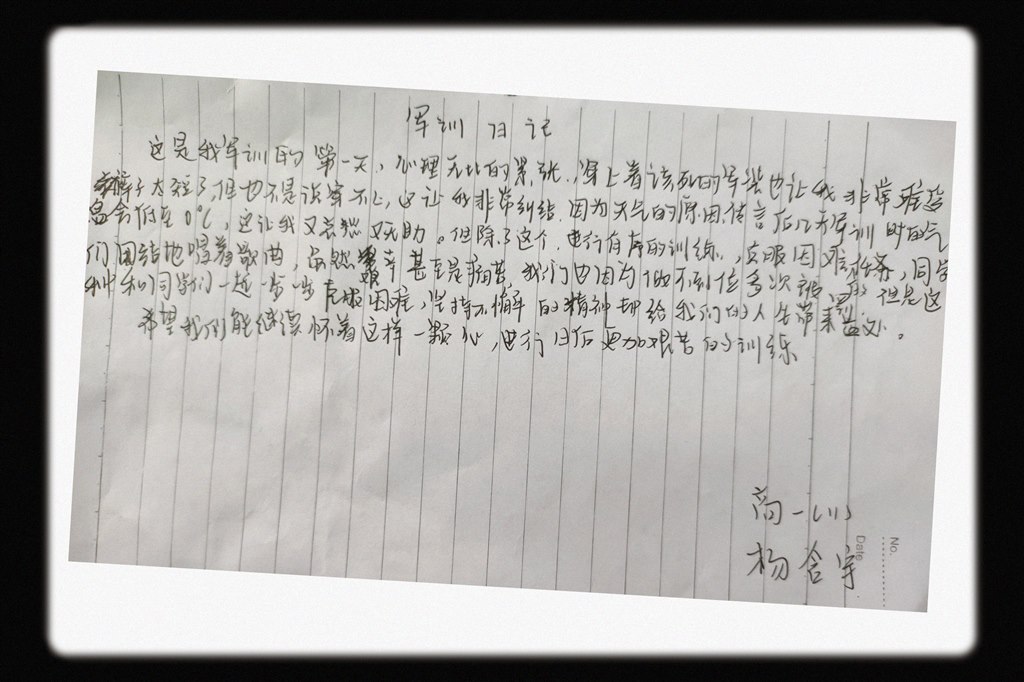 军训日记
这是我军训的第一天，心理无比的紧张，穿上着该死的军装也让我非常难受
裤子太短了，但也不是说穿不上，这让我非常纠结，因为天气的原因，传言后几天军训时的气
温会低至0℃，这让我又哀愁又无助。但除了这个，进行有序的训练，克服困难任务，同学
们团结地唱着歌曲，虽然艰辛甚至是痛苦，我们也因为做不到位多次被罚，但是这
种和同学们一起一步一步克服困难，坚持不懈的精神却给我们的人生带来益处。
希望我们能继续怀着这样一颗心，进行日后更加艰苦的训练
高一(11)
杨含宇
No.
Date